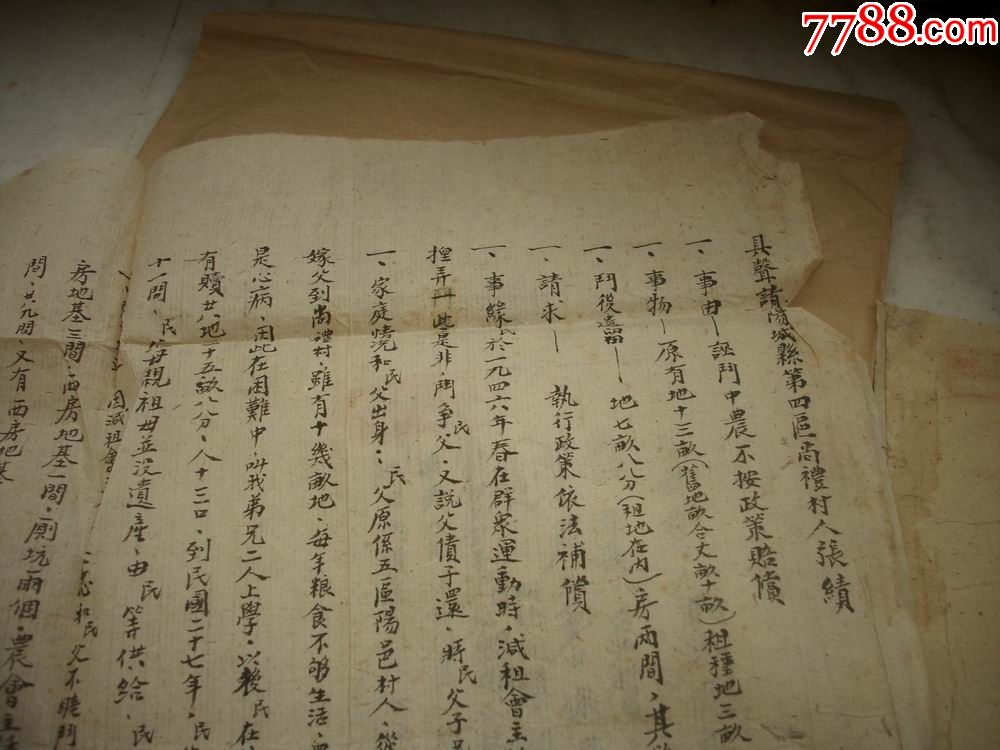 7788.com
具聲請陽城縣第四區尚禮村人張績
一、事由—誣鬥中農不按政策賠償
一、事物—原有地十三畝(舊地畝合丈畝十畝)租種地三畝
一、鬥後遺留—地七畝八分(租地在內)房兩間,其
一、請求— 執行政策依法補償
一、事緣民於一九四六年春在群眾運動時,減租會主
捏弄 此是非,鬥爭民父,又說父債子還,將民父子
一、家庭情况和民父出身:民父原係五區陽邑村人,從
嫁父到尚禮村,雖有十幾畝地,每年粮食不够生活,
是心病,因此在困難中,叫我弟兄二人上學,以後民在
有贖廿八地十五畝八分,人十三口,到民國二十七年,民
十一間,民等母親祖母並没遺產,由民等供給,民
因減租會
和民父不睦鬥
房地基三間,西房地基一間,厕坑兩個,農會主
間,廿九間,又有西房地基